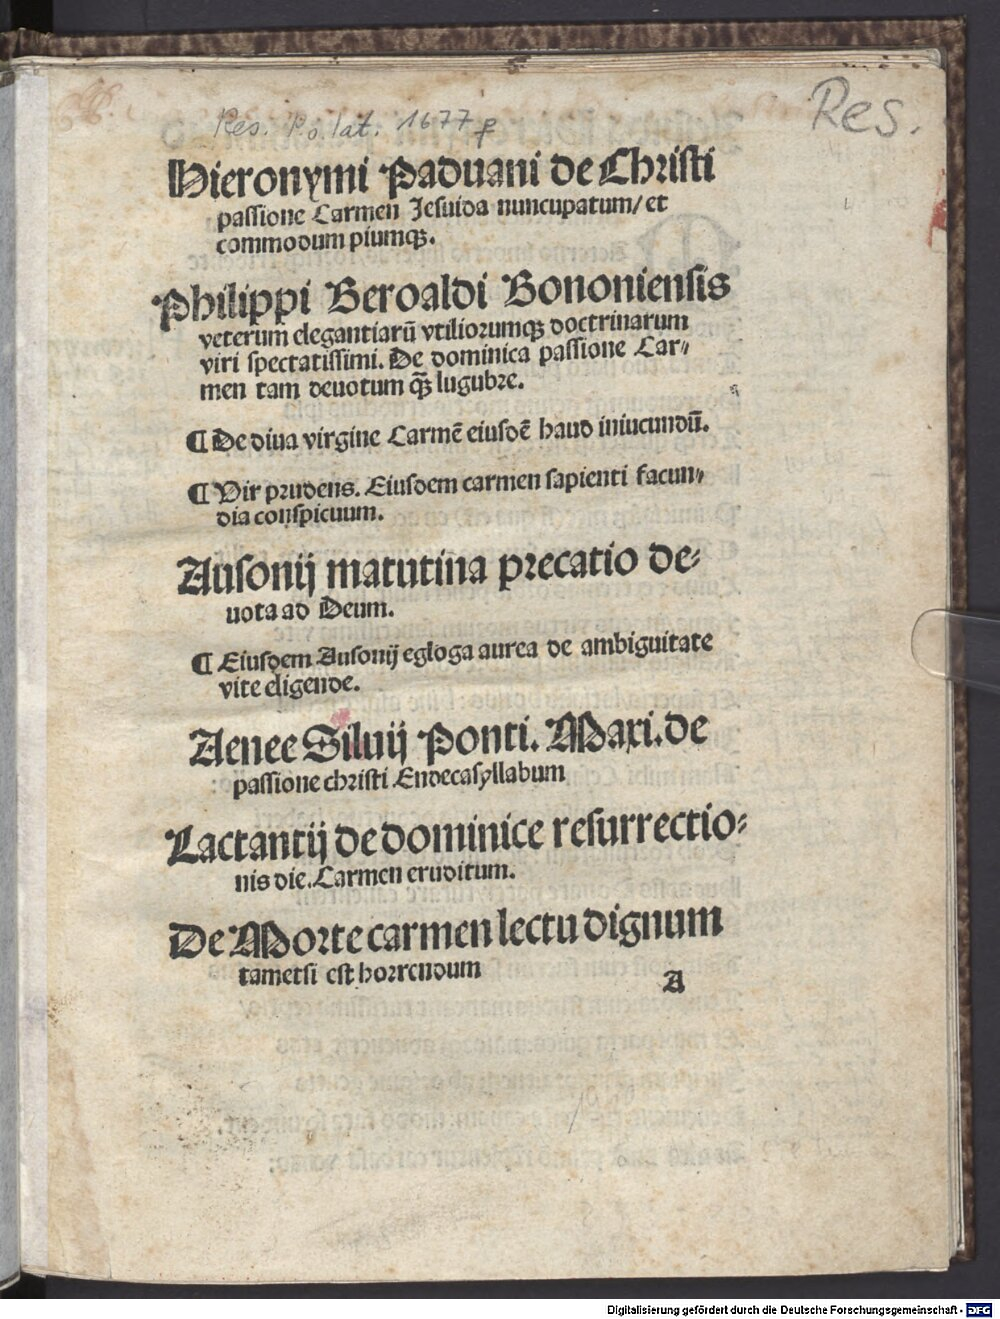 Res. P.o. lat. 1677 p
Res.
Hieronymi Paduani de Christi
passione Carmen Jesuida nuncupatum/ et
commodum piumqꝫ.
Philippi Beroaldi Bononiensis
veterum elegantiarū vtiliorumqꝫ doctrinarum
viri spectatissimi. De dominica passione Car⸗
men tam deuotum qꝫ̄ lugubre.
¶ De diua virgine Carmē eiusdē haud iniucundū.
¶ Vir prudens. Eiusdem carmen sapienti facun⸗
dia conspicuum.
Ausonij matutina precatio de⸗
uota ad Deum.
¶ Eiusdem Ausonij egloga aurea de ambiguitate
vite eligende.
Aenee Siluij Ponti. Maxi. de
passione christi Endecasyllabum
Lactantij de dominice resurrectio⸗
nis die. Carmen eruditum.
De Morte carmen lectu dignum
tametsi est horrendum
A
Digitalisierung gefördert durch die Deutsche Forschungsgemeinschaft - DFG